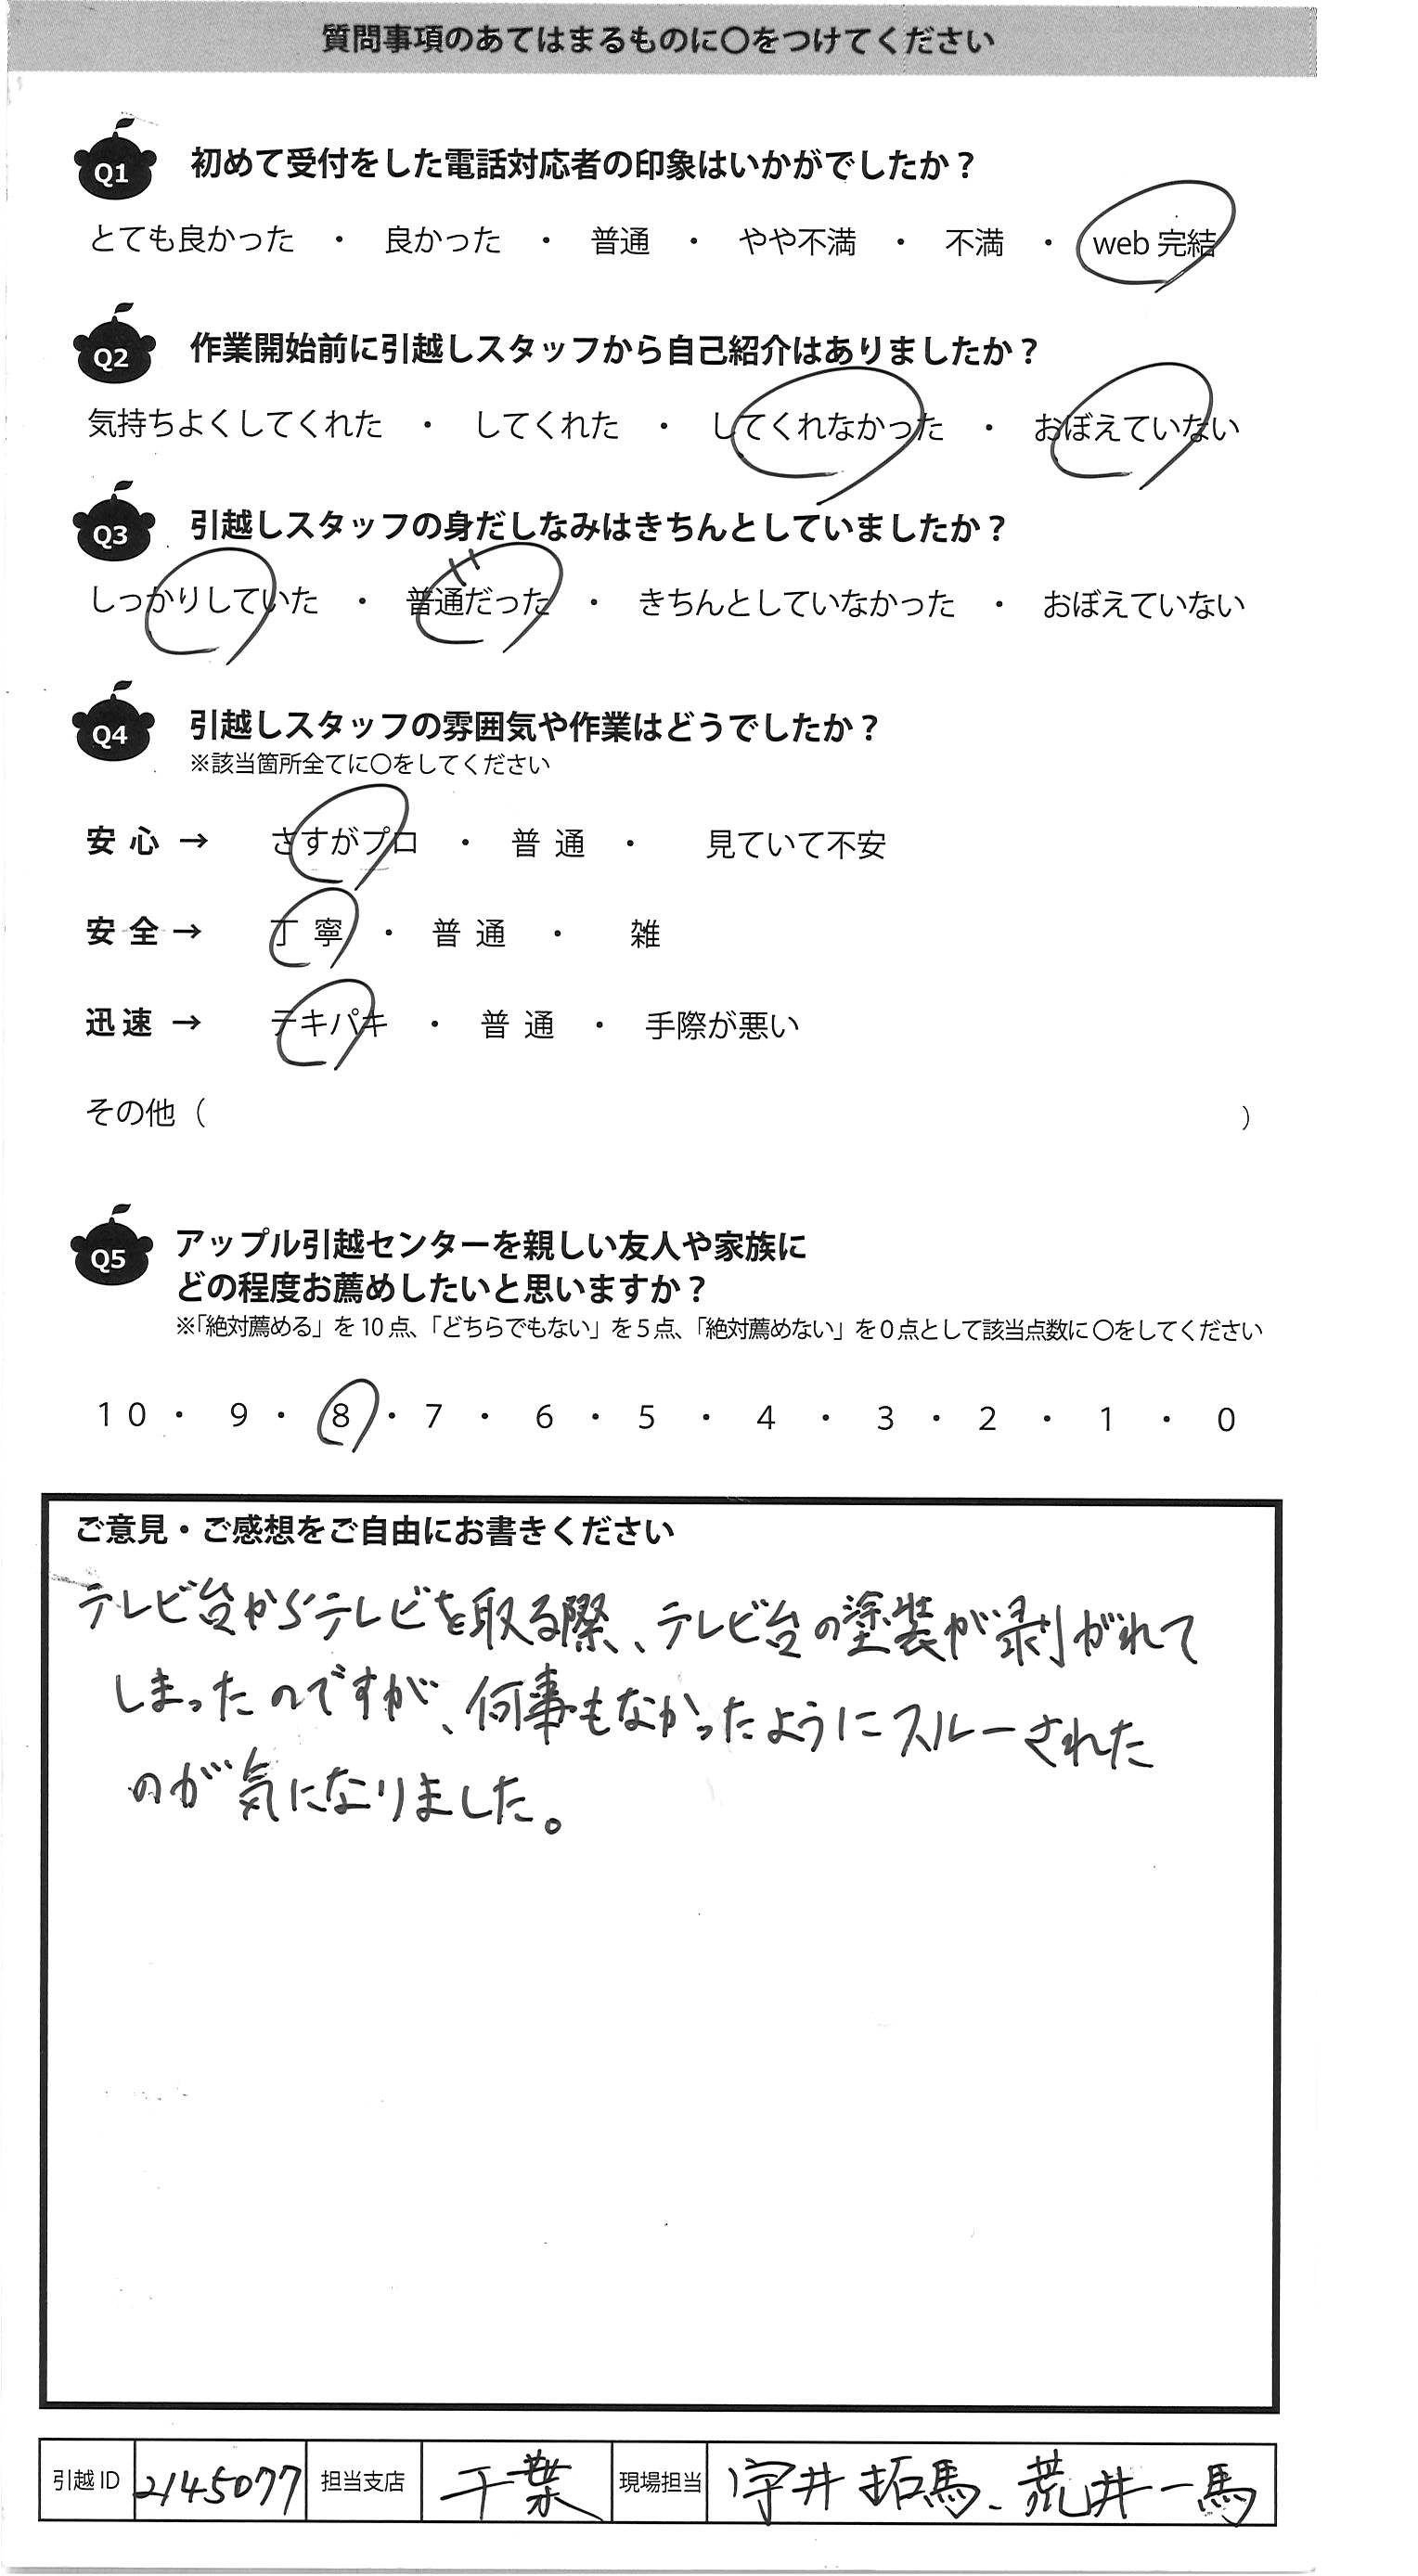 質問事項のあてはまるものに〇をつけてください
Q1 初めて受付をした電話対応者の印象はいかがでしたか？
とても良かった ・ 良かった ・ 普通 ・ やや不満 ・ 不満 ・ web 完結
Q2 作業開始前に引越しスタッフから自己紹介はありましたか？
気持ちよくしてくれた ・ してくれた ・ してくれなかった ・ おぼえていない
Q3 引越しスタッフの身だしなみはきちんとしていましたか？
しっかりしていた ・ 普通だった ・ きちんとしていなかった ・ おぼえていない
Q4 引越しスタッフの雰囲気や作業はどうでしたか？
※該当箇所全てに〇をしてください
安心 → さすがプロ ・ 普通 ・ 見ていて不安
安全 → 丁寧 ・ 普通 ・ 雑
迅速 → テキパキ ・ 普通 ・ 手際が悪い
その他（ ）
Q5 アップル引越センターを親しい友人や家族に
どの程度お薦めしたいと思いますか？
※「絶対薦める」を10点、「どちらでもない」を5点、「絶対薦めない」を0点として該当点数に〇をしてください
10 ・ 9 ・ 8 ・ 7 ・ 6 ・ 5 ・ 4 ・ 3 ・ 2 ・ 1 ・ 0
ご意見・ご感想をご自由にお書きください
テレビ台からテレビを取る際、テレビ台の塗装が剥がれて
しまったのですが、何事もなかったようにスルーされた
のが気になりました。
引越ID 2145077 担当支店 千葉 現場担当 宇井 拓馬、荒井一馬